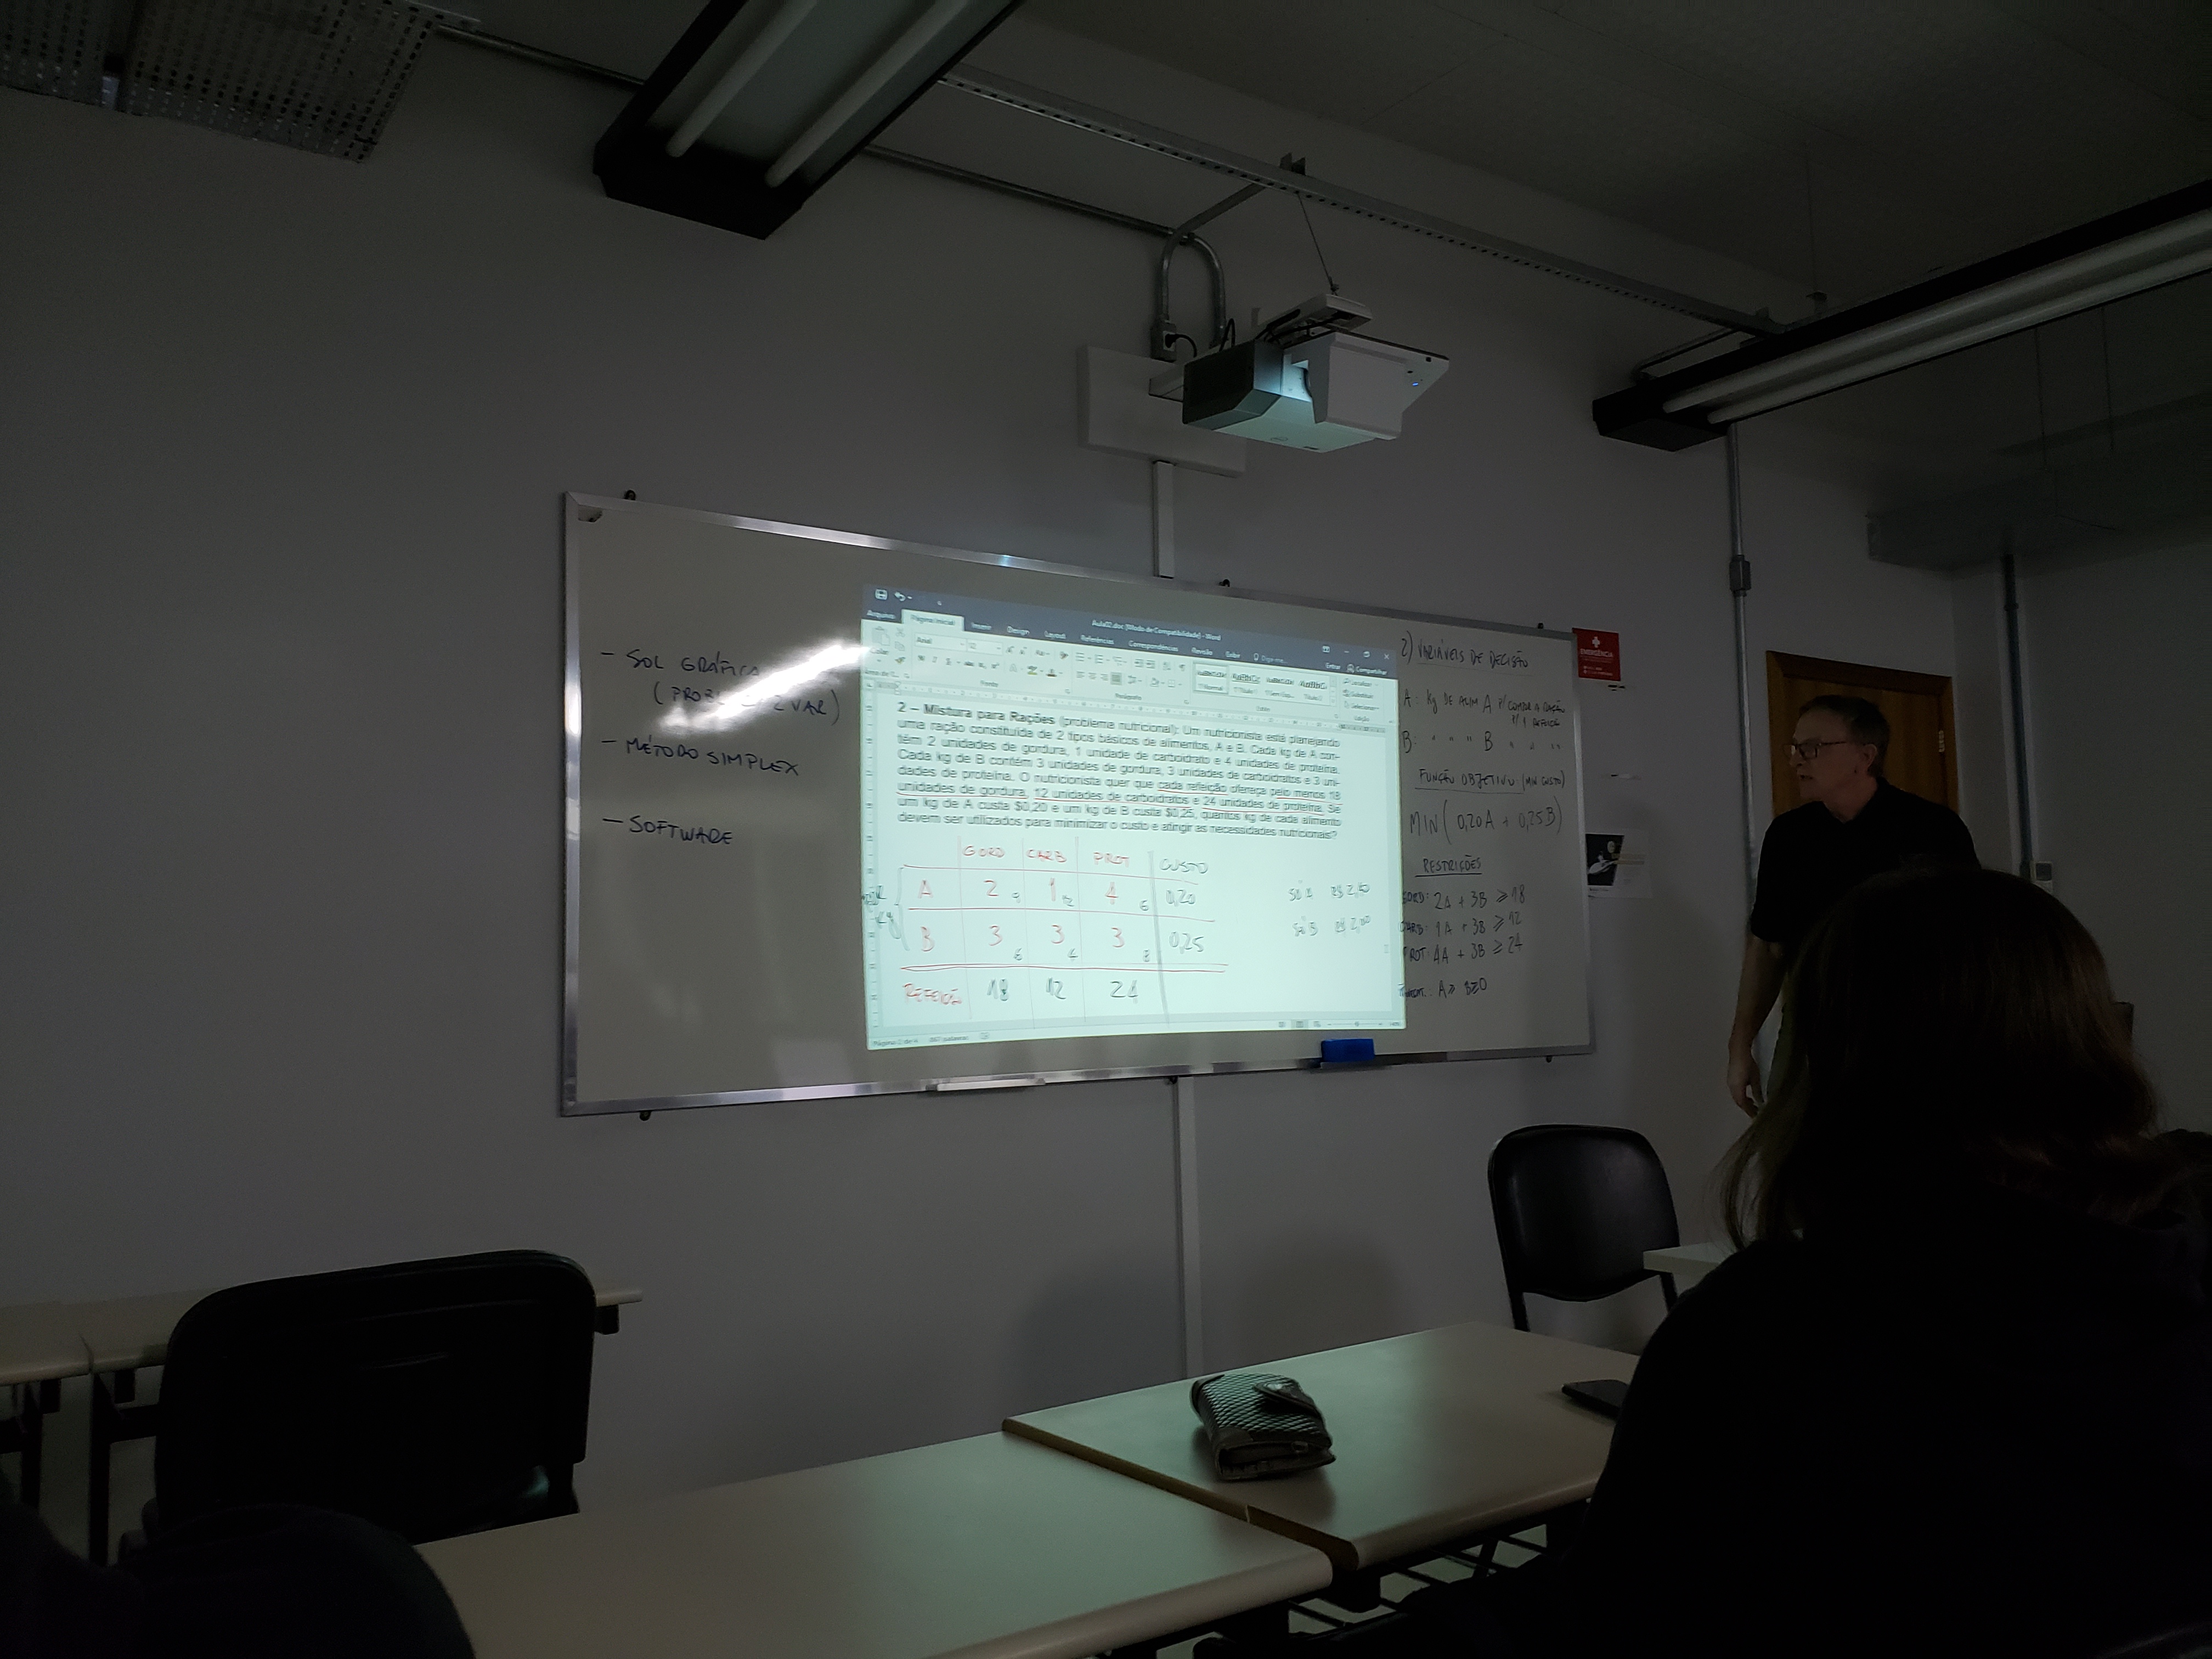 - SOL GRÁFICA
(PROBL 2 VAR)
- MÉTODO SIMPLEX
- SOFTWARE
Aula02.doc [Modo de Compatibilidade] - Word
Arquivo Página Inicial Inserir Design Layout Referências Correspondências Revisão Exibir Entrar Compartilhar
Arial
Fonte Parágrafo
2 – Mistura para Rações (problema nutricional): Um nutricionista está planejando
uma ração constituída de 2 tipos básicos de alimentos, A e B. Cada kg de A con-
têm 2 unidades de gordura, 1 unidade de carboidrato e 4 unidades de proteína.
Cada kg de B contém 3 unidades de gordura, 3 unidades de carboidratos e 3 uni-
dades de proteína. O nutricionista quer que cada refeição ofereça pelo menos 18
unidades de gordura, 12 unidades de carboidratos e 24 unidades de proteína. Se
um kg de A custa $0,20 e um kg de B custa $0,25, quantos kg de cada alimento
devem ser utilizados para minimizar o custo e atingir as necessidades nutricionais?
GORD CARB PROT CUSTO
A 2 9 1 12 4 6 0,20
B 3 6 3 4 3 8 0,25
REFEIÇÃO 18 12 24
SÓ A R$ 2,40
SÓ B R$ 2,00
2) VARIÁVEIS DE DECISÃO
A: Kg DE ALIM A P/ COMPOR A RAÇÃO
P/ 1 REFEIÇÃO
B: " " " B " " "
FUNÇÃO OBJETIVO (MIN CUSTO)
MIN (0,20A + 0,25B)
RESTRIÇÕES
GORD: 2A + 3B ≥ 18
CARB: 1A + 3B ≥ 12
PROT: 4A + 3B ≥ 24
A≥ B≥0
EMERGÊNCIA